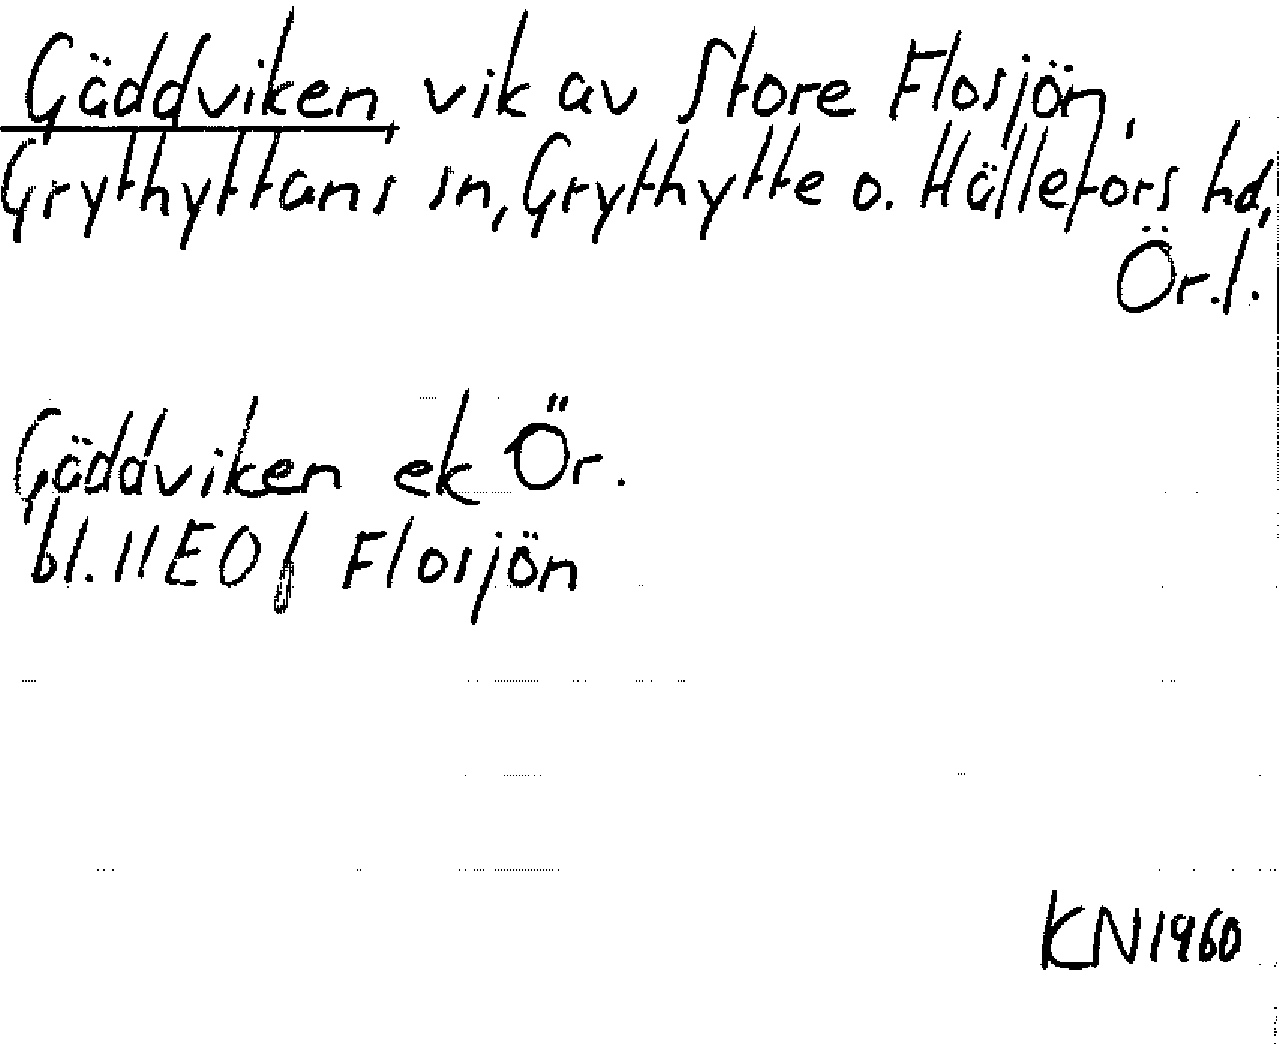 Gäddviken, vik av Store Flosjön,
Grythyttans sn, Grythytte o. Hällefors hd,
Ör.l.
Gäddviken ek Ör.
bl. 11E0f Flosjön
KN1960